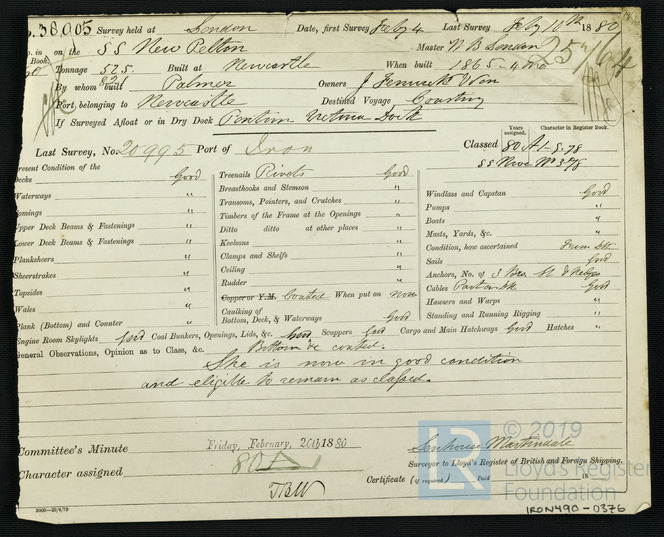 38,005 Survey held at London Date, first Survey Feby 4 Last Survey Feby 10th 1880
on the SS New Pelton Master W B London
Book.
Tonnage 525. Built at Newcastle When built 1865-4mo
821
By whom built Palmer Owners J Fenwick & Son
Port belonging to Newcastle Destined Voyage, Coasting
If Surveyed Afloat or in Dry Dock Victoria Dock
Last Survey, No. 20995 Port of Iron Classed
Years assigned. Character in Register Book.
80 A1-9.78
SS Nwc No3-78
Present Condition of the
Decks Good
Waterways "
Comings "
Upper Deck Beams & Fastenings "
Lower Deck Beams & Fastenings "
Planksheers "
Sheerstrakes "
Topsides "
Wales "
Plank (Bottom) and Counter "
Treenails Rivets Good
Breasthooks and Stemson "
Transoms, Pointers, and Crutches "
Timbers of the Frame at the Openings "
Ditto ditto at other places "
Keelsons "
Clamps and Shelfs "
Ceiling "
Rudder "
Copper or Y.M. Coated When put on now
Caulking of
Bottom, Deck, & Waterways Good
Windlass and Capstan Good
Pumps "
Boats "
Masts, Yards, &c. "
Condition, how ascertained From Dk
Sails Good
Anchors, No. of 3 Brs. St & Kedges
Cables Part on Dk Good
Hawsers and Warps "
Standing and Running Rigging "
Engine Room Skylights Good Coal Bunkers, Openings, Lids, &c. Good Scuppers Good Cargo and Main Hatchways Good Hatches "
General Observations, Opinion as to Class, &c. Bottom &c coated.
She is now in good condition
and eligible to remain as classed.
Committee's Minute Friday, February, 20th 1880
Character assigned 80A
TBW
Senhouse Martindale
Surveyor to Lloyd's Register of British and Foreign Shipping.
Certificate (if required) Paid 18
LR
© 2019
Lloyd's Register
Foundation
IRON490-0376